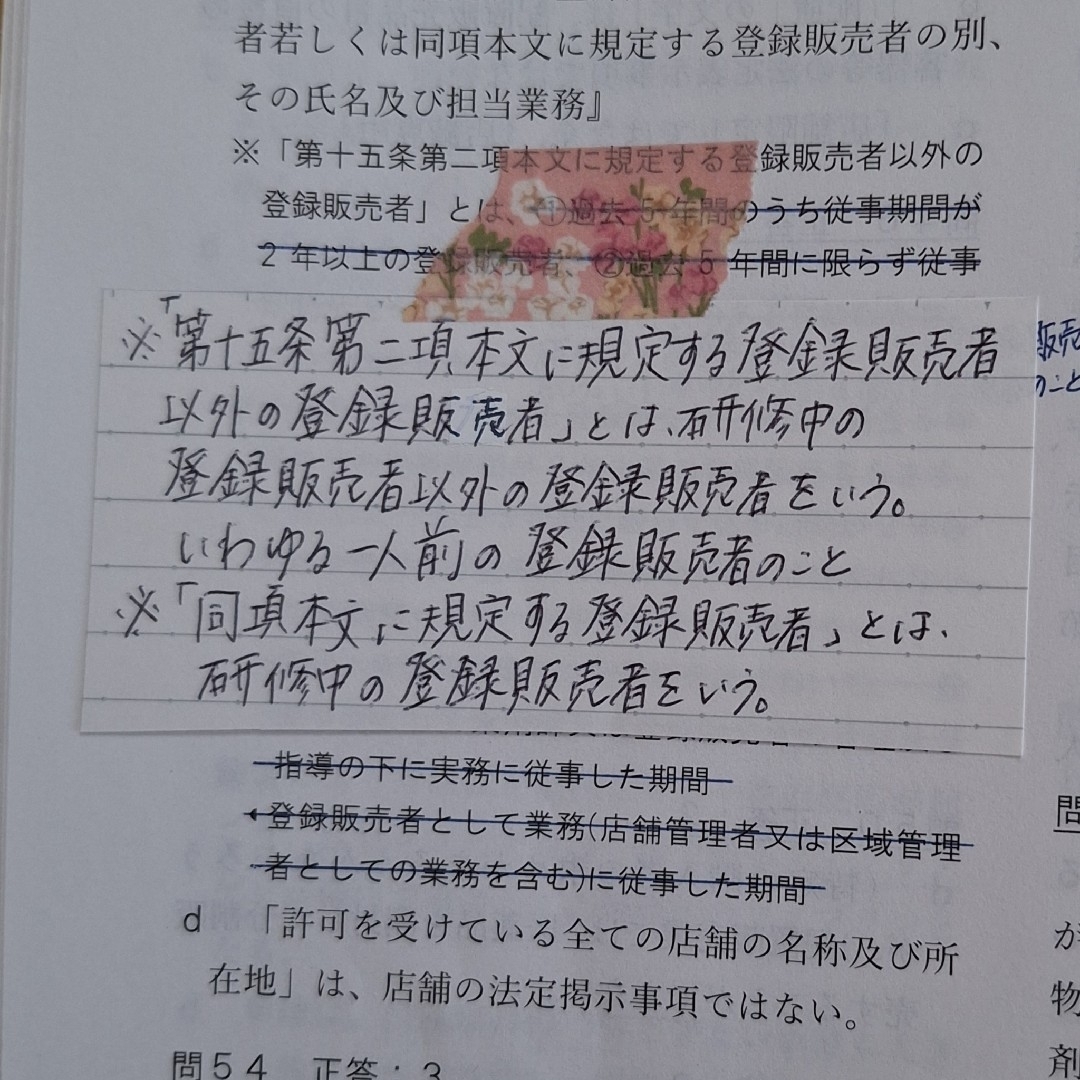 者若しくは同項本文に規定する登録販売者の別、
その氏名及び担当業務』
※「第十五条第二項本文に規定する登録販売者以外の
登録販売者」とは、①過去5年間のうち従事期間が
2年以上の登録販売者、②過去5年間に限らず従事
※「第十五条第二項本文に規定する登録販売者
以外の登録販売者」とは、研修中の
登録販売者以外の登録販売者をいう。
いわゆる一人前の登録販売者のこと
※「同項本文に規定する登録販売者」とは、
研修中の登録販売者をいう。
販売
のこと
指導の下に実務に従事した期間
登録販売者として業務(店舗管理者又は区域管理
者としての業務を含む)に従事した期間
d 「許可を受けている全ての店舗の名称及び所
在地」は、店舗の法定掲示事項ではない。
問54 正答:3
問
る
が
物
剤